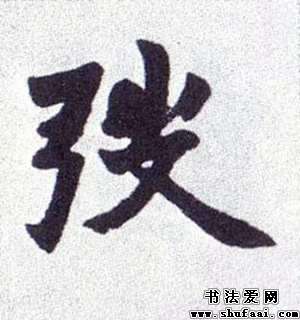 弢
书法爱网
www.shufaai.com